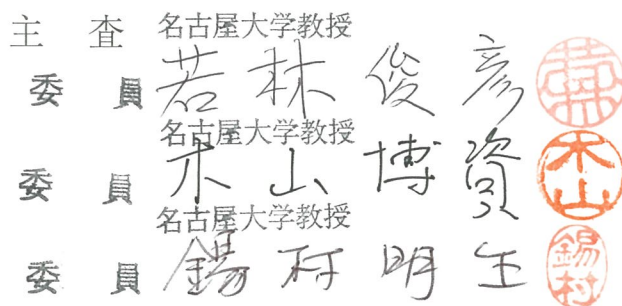 主査 名古屋大学教授
委員 若林俊彦 若林
名古屋大学教授
委員 木山博資 木山
名古屋大学教授
委員 錫村明生 錫村